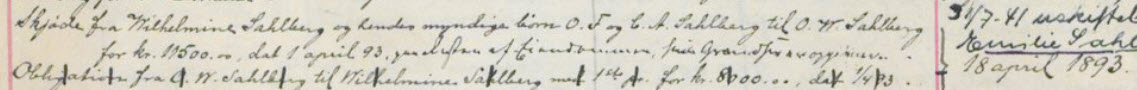 Skjøde fra Wilhelmine Sahlberg og hendes myndige børn O. F. og C. A. Sahlberg til O. W. Sahlberg
for kr. 11500.00, dat 1 april 93, paa af Eiendommen,
Obligation fra O. W. Sahlberg til Wilhelmine Sahlberg med 1ste pr. for kr. 8000.00, dat 1/4 93.
31/7-41 uskiftet
Emilie Sahl
18 april 1893.